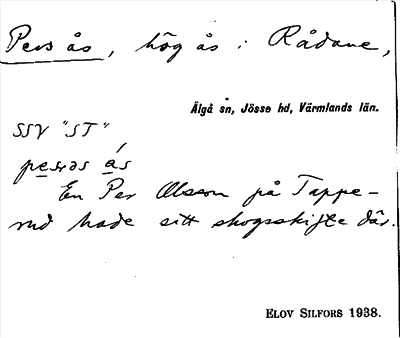 Pers ås, hög ås i Rådane,
Älgå sn, Jösse hd, Värmlands län.
SSV "ST"
ås
En Per Olsson på Tappe-
rud hade sitt skogsskifte där.
ELOV SILFORS 1938.